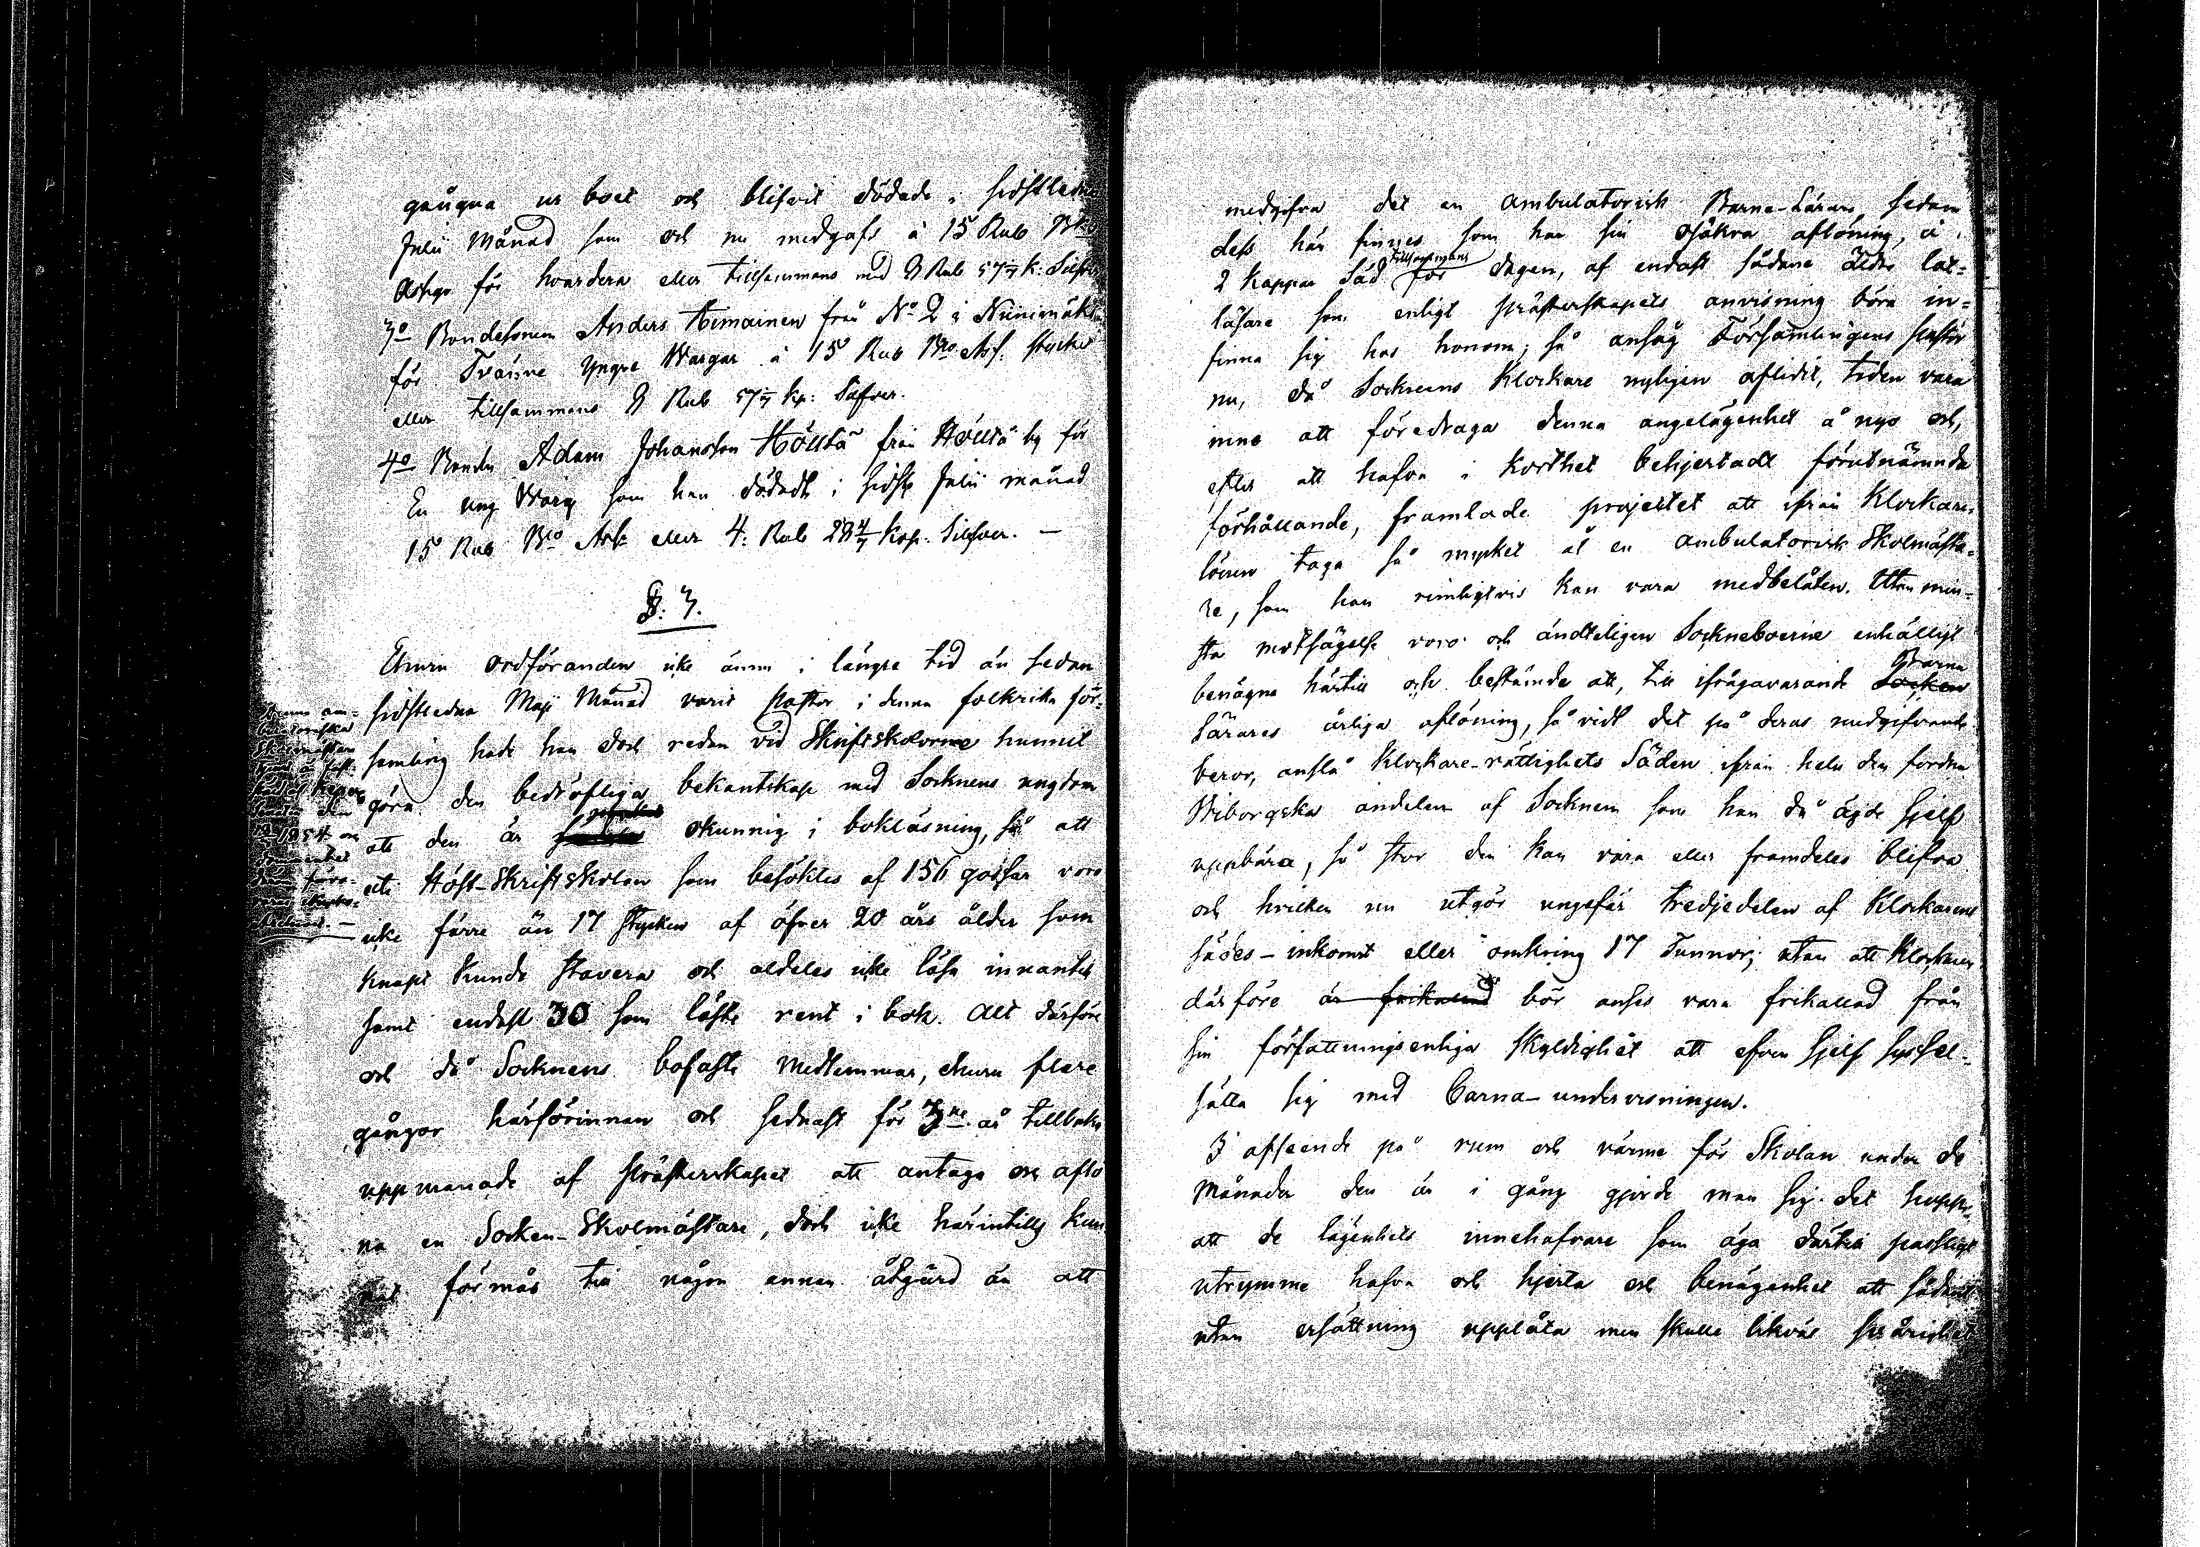 gångna ur boet och blifvit dödade i sidstledne
Julii Månad som och nu medgafs à 15 Rub Bko
Assign för hvardera eller tillsammans med 8 Rub 57 1/7 k: Silfver
3o Bondesonen Anders Aimainen från No 2 i Niinimäki
för Tvänne Yngre Wargar à 15 Rub Bko Ass. stycket
eller tillsammans 8 Rub 57 1/7 kp: Silfver.
4o Bonden Adam Johansson Hölttä från Höltä by för
En ung Warg som han dödadt i sidste Julii månad
15 Rub Bko Ass eller 4. Rub 28 4/7 kop. Silfver. —
§. 3.
Ehuru ordföranden icke ännu i längre tid än sedan
sidstledne Maji Månad varit Pastor i denna folkrika för-
samling hade han doch redan vid Skriftskolorne hunnit
göra den bedröfliga bekantskap med Socknens ungdom
att den är okunnig i bokläsning, så att
uti Höst-Skriftskolan som besöktes af 156 gossar voro
icke färre än 17 Stycken af öfver 20 års ålder som
knapt kunde stavera och aldeles icke läsa innantill
samt endast 30 som läste rent i bok. Alt därföre
och då Socknens bofaste medlemmar, ehuru flere
gångor härförinnan och sednast för 3ne år tillbaka
uppmanade af Presterskapet att antaga och aflö
na en Socken-Skolmästare, doch icke härintills kun
nat förmås till någon annan åtgärd än att
medgifva det en ambulatorisk Barna-Lärare, sedan
dess här finnes som har sin osäkra aflöning, à
2 kappar Säd tillsammans för dagen, af endast sådane äldre lat-
läsare som enligt presterskapets anvisning böra in-
finna sig hos honom; så ansåg Församlingens Pastor
nu, då Socknens Klockare nyligen aflidit, tiden vara
inne att föredraga denna angelägenhet å nyo och,
efter att hafva i korthet behjertadt förutnämnda
förhållande, framlade projectet att ifrån Klockare-
lönen taga så mycket åt en ambulatorisk Skolmästa-
re, som han rimligtvis kan vara medbelåten. Utan min-
sta motsägelse voro och ändteligen Sockneboerne enhälligt
benägne härtill och bestämde att, till ifrågavarande Barna
Lärares årliga aflöning, så vidt det på deras medgifvande
beror, anslå Klockare-rättighets Säden ifrån hela den fordna
Wiborgska andelen af Socknen som han då ägde sjelf
uppbära, så stor den kan vara eller framdeles blifva
och hvilken nu utgör ungefär tredjedelen af Klockarens
sädes-inkomst eller omkring 17 Tunnor; utan att Klockaren
därföre är frikallad bör anses vara frikallad från
sin författningsenliga skyldighet att efven sjelf syssel-
sätta sig med barna-undervisningen.
I afseende på rum och värme för Skolan under de
Månader den är i gång gjorde man sig det hopp,
att de lägenhets innehafvare som äga därtill passligt
utrymme hafva och hjerta och benägenhet att sådant
utan ersättning upplåta men skulle likväl svårighet